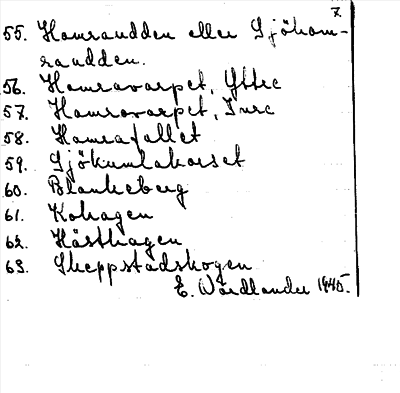 7
55. Hamraudden eller Sjöham-
raudden.
56. Hamravarpet, Yttre
57. Hamravarpet, Inre
58. Hamrafallet
59. Sjökumlakorset
60. Blankeberg
61. Kohagen
62. Hästhagen
63. Skeppstadskogen
E. Nordlander 1940.